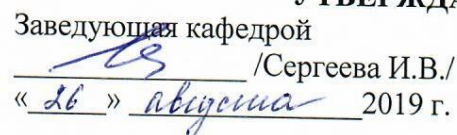 УТВЕРЖДА
Заведующая кафедрой
/Сергеева И.В./
«26» августа 2019 г.